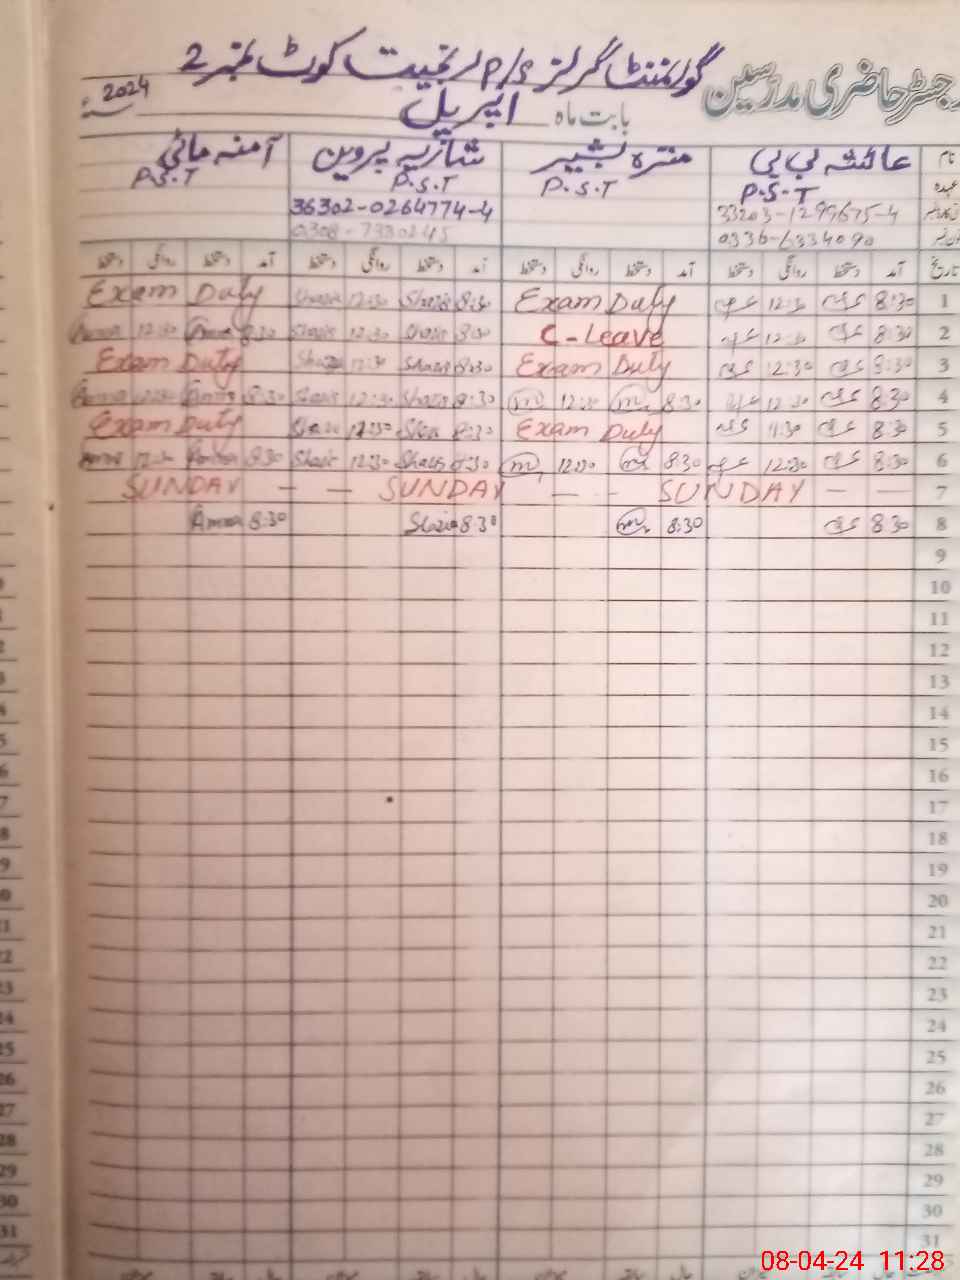 رجسٹر حاضری مدرسین گورنمنٹ گرلز P/S رنجیت کوٹ نمبر 2
بابت ماہ اپریل 2024ء
نام عائشہ بی بی منزہ بشیر شازیہ پروین آمنہ مائی
عہدہ P.S.T P.S.T P.S.T P.S.T
33203-1299675-4 36302-0264774-4
0336-6334090 0308-7330245
تاریخ آمد دستخط روانگی دستخط آمد دستخط روانگی دستخط آمد دستخط روانگی دستخط آمد دستخط روانگی دستخط
Exam Duty Shazia 12:30 Shazia 8:30 Exam Duty 12:30 8:30 1
Amna 12:30 Amna 8:30 Shazia 12:30 Shazia 8:30 C-Leave 12:30 8:30 2
Exam Duty Shazia 12:30 Shazia 8:30 Exam Duty 12:30 8:30 3
Amna 12:30 Amna 8:30 Shazia 12:30 Shazia 8:30 m 12:30 m 8:30 12:30 8:30 4
Exam Duty Shazia 12:30 Shazia 8:30 Exam Duty 11:30 8:30 5
Amna 12:30 Amna 8:30 Shazia 12:30 Shazia 8:30 m 12:30 m 8:30 12:30 8:30 6
SUNDAY - - SUNDAY - - SUNDAY - - 7
Amna 8:30 Shazia 8:30 m 8:30 8:30 8
9
10
11
12
13
14
15
16
17
18
19
20
21
22
23
24
25
26
27
28
29
30
31
08-04-24 11:28